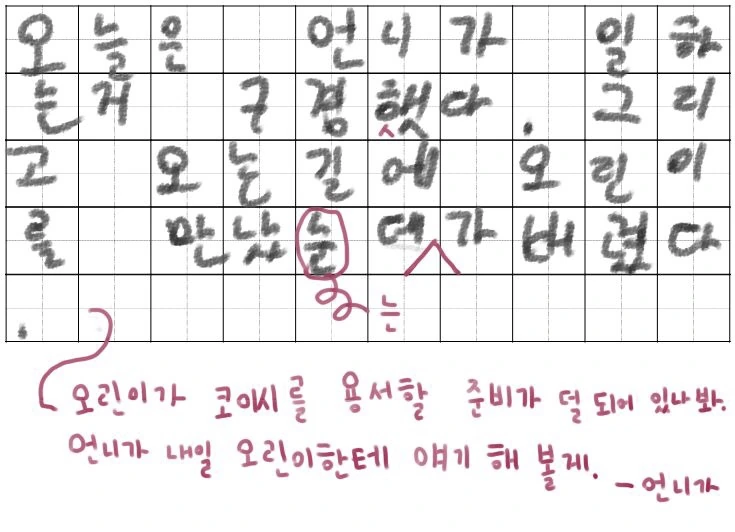 오늘은 언니가 일하
는거 구경햇다. 그리
고 오는길에 오린이
를 만낫눈데가버렸다
.
는
오린이가 코이시를 용서할 준비가 덜 되어 있나 봐.
언니가 내일 오린이한테 얘기 해 볼게.
- 언니가